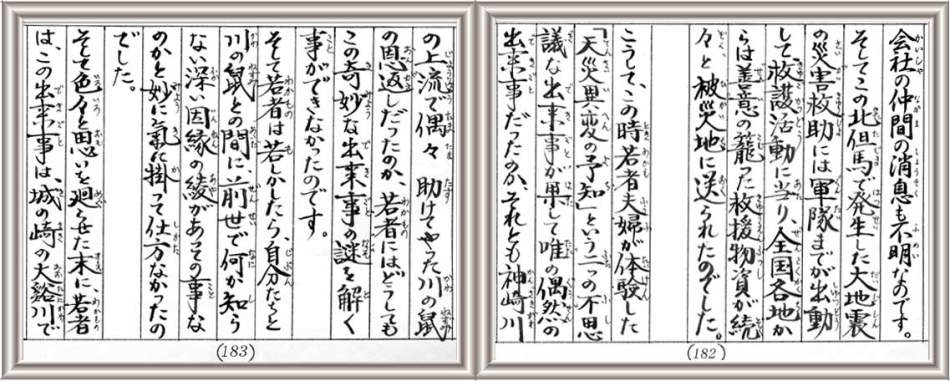 会社の仲間の消息も不明なのです。
そしてこの北但馬で発生した大地震
の災害救助には軍隊までが出動
して、救護活動に当り、全国各地か
らは善意の籠った救援物資が続
々と被災地に送られたのでした。
こうして、この時若者夫婦が体験した
「天災異変の予知」という二つの不思
議な出来事が果して唯の偶然の
出来事だったのか、それとも神崎川
(182)
の上流で偶々助けてやった川の鼠
の恩返しだったのか、若者にはどうしても
この奇妙な出来事の謎を解く
事ができなかったのです。
そして若者は若しかしたら、自分たちと
川の鼠との間に前世で何か知ら
ない深い因縁の綾があその事な
のかと妙に氣に掛って仕方なかったの
でした。
そして色々と思いを廻らせた末に、若者
は、この出来事は、城の崎の大谿川で
(183)